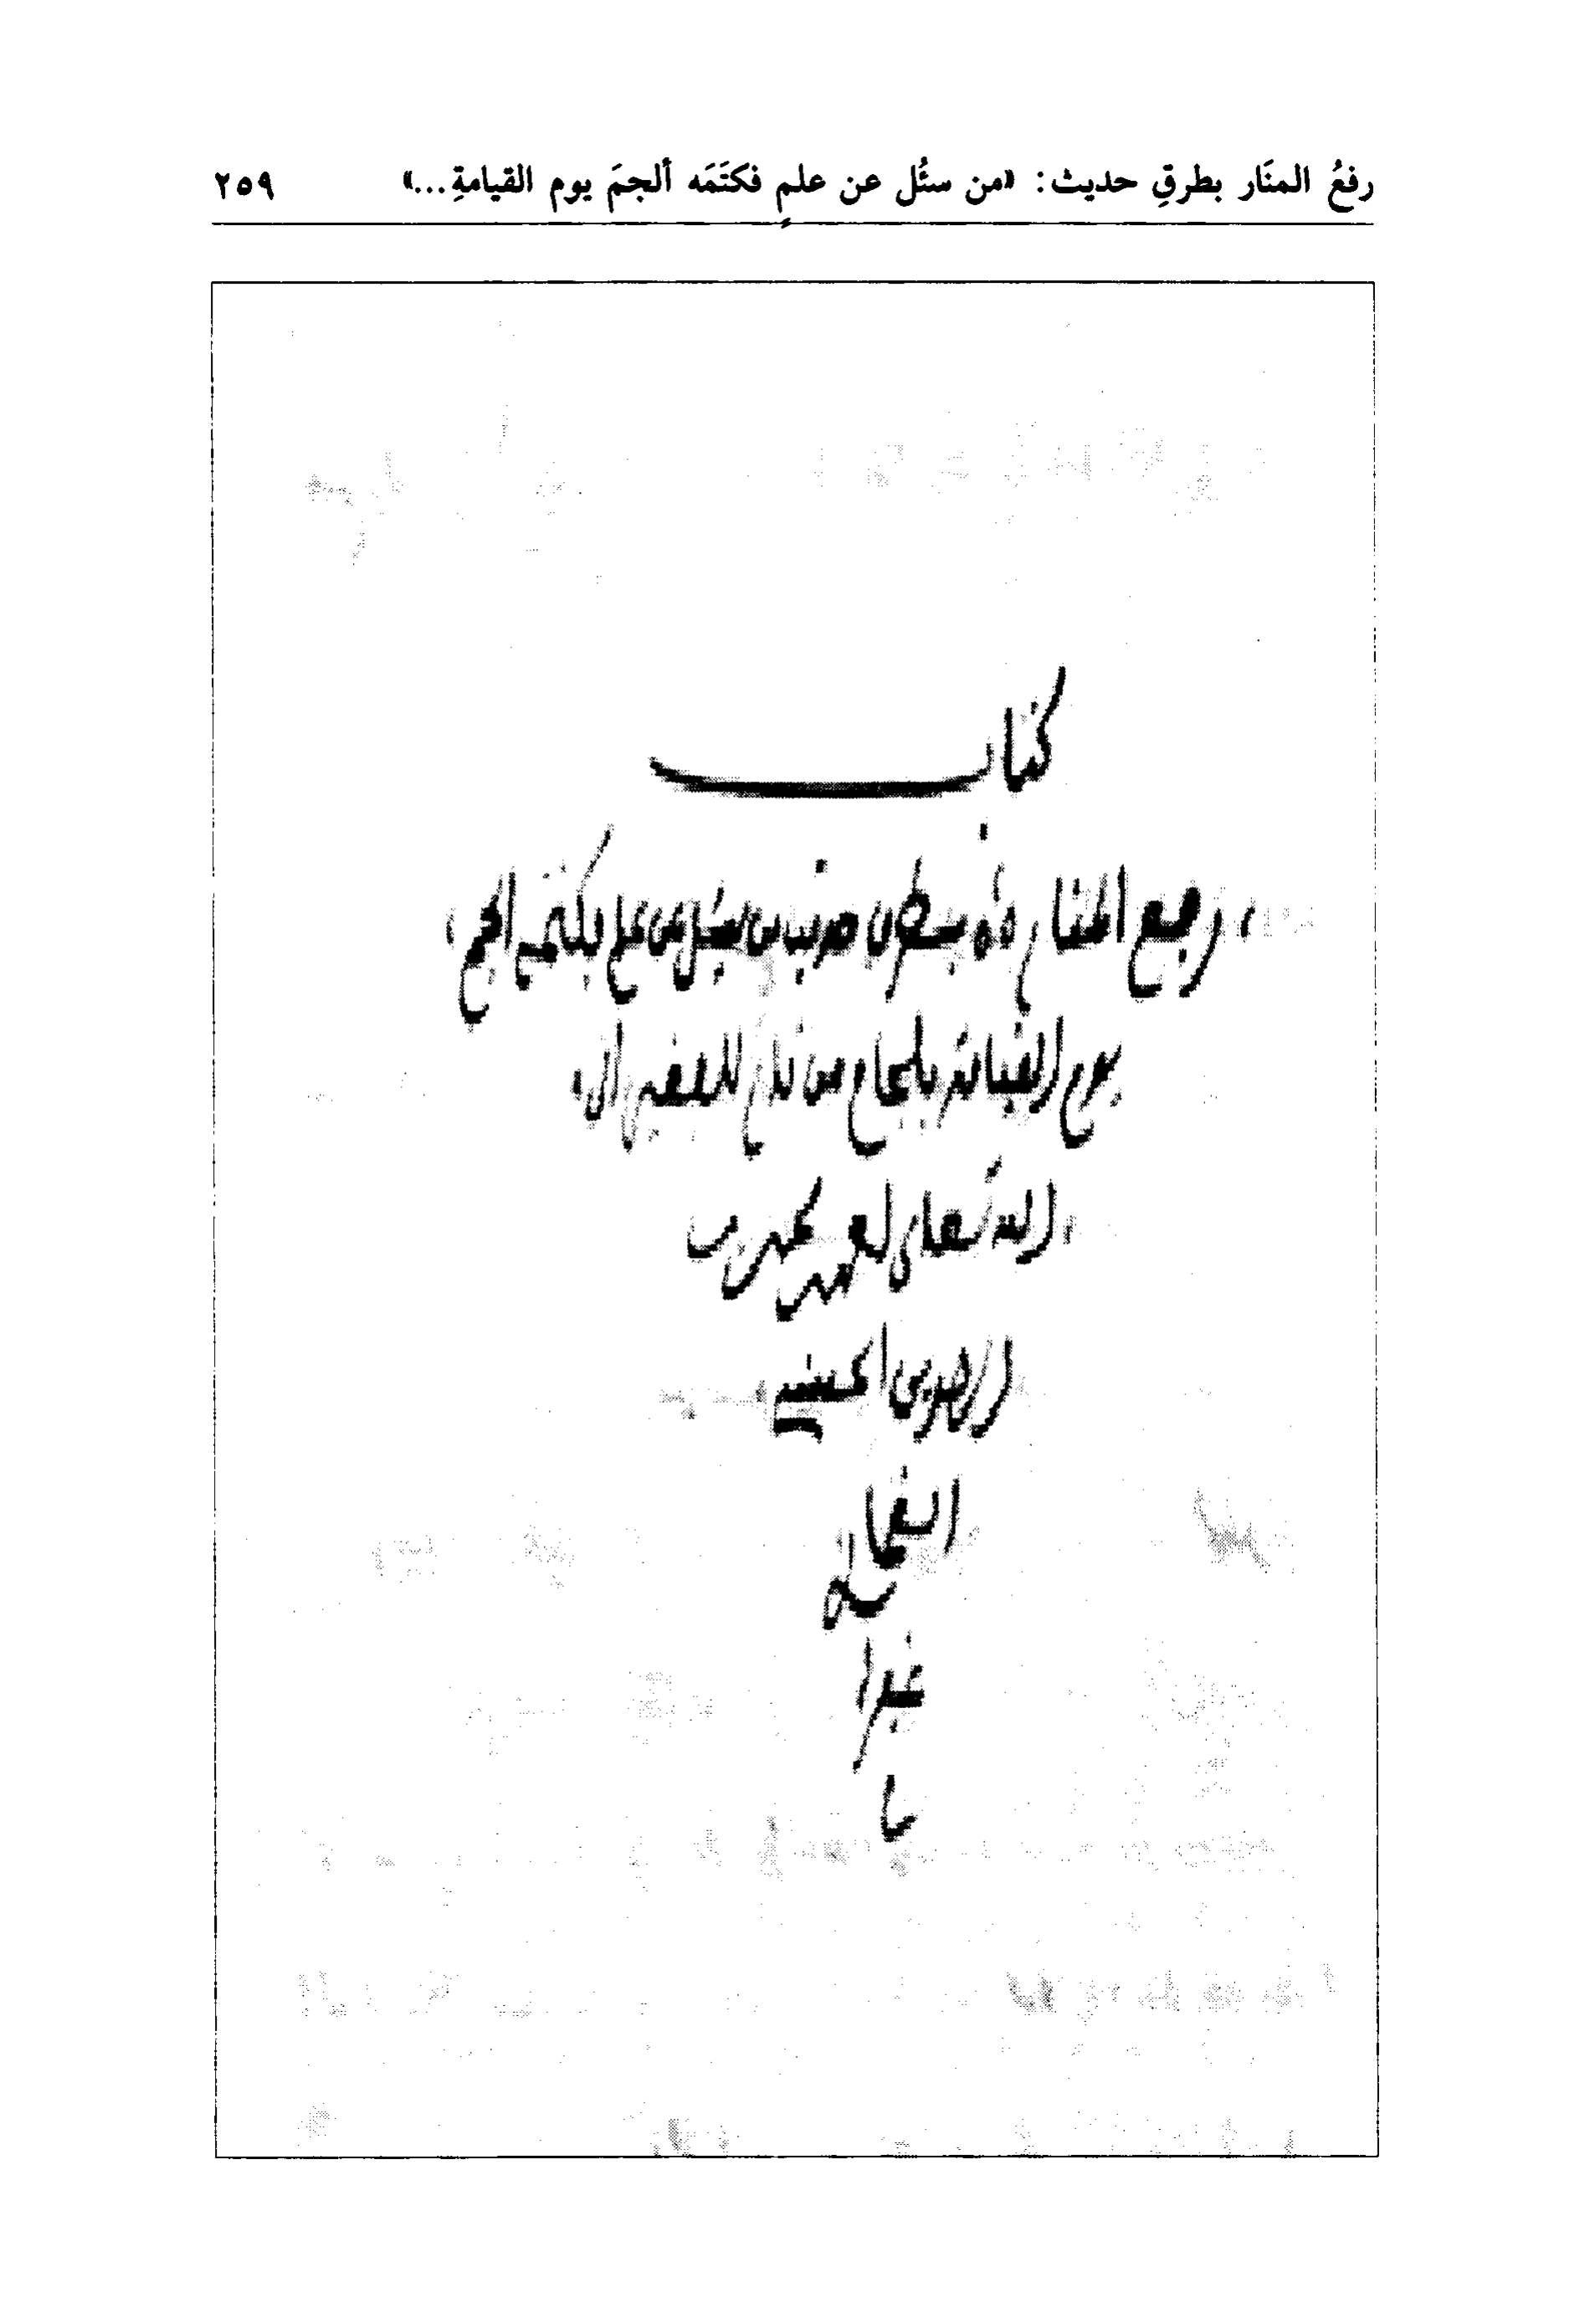 رفعُ المنَار بطرقِ حديث: «من سئُل عن علمٍ فكتَمَه ألجمَ يوم القيامةِ...» ٢٥٩
كتاب
رفع المنار بطرق حديث من سئل عن علم فكتمه ألجم
يوم القيامة بلجام من نار للفقير إلى
الله تعالى أحمد بن
الصديق الحسني
الغماري
غفر الله